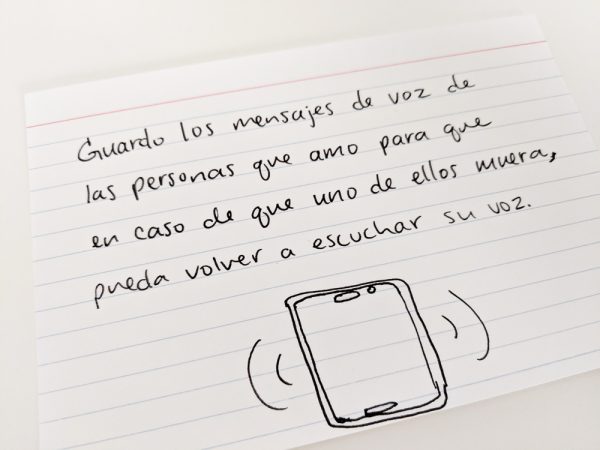 Guardo los mensajes de voz de
las personas que amo para que
en caso de que uno de ellos muera,
pueda volver a escuchar su voz.